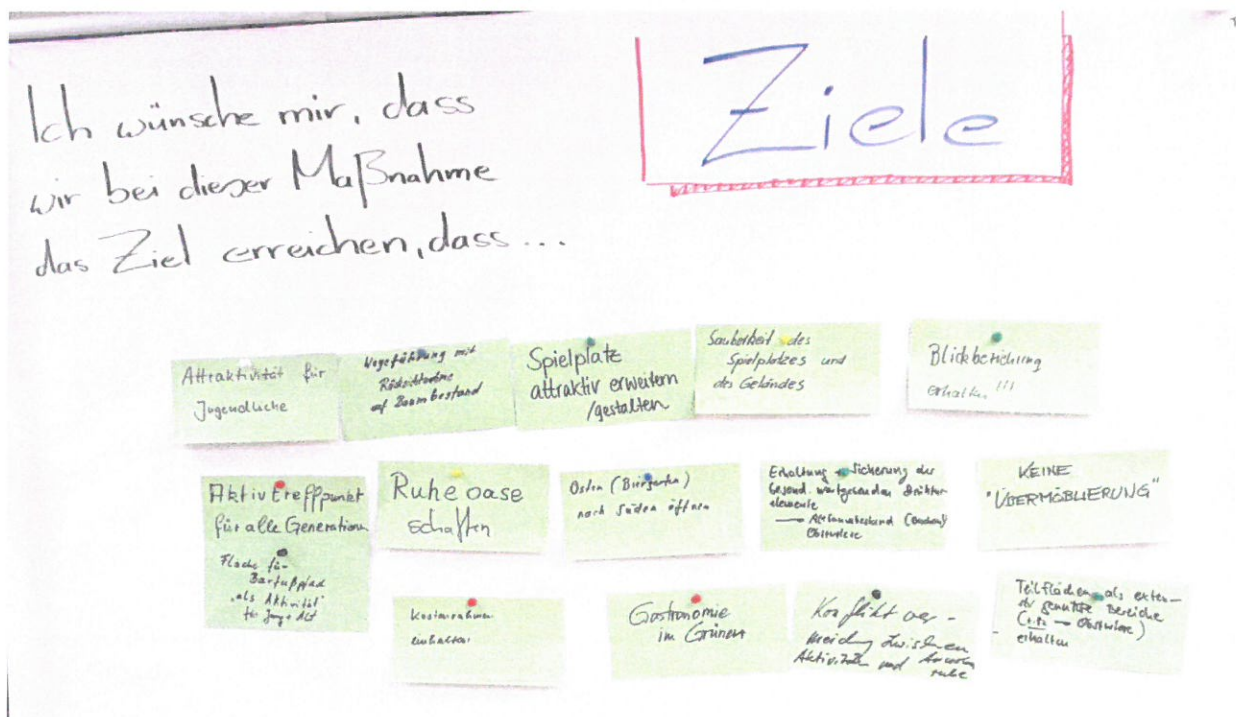 Ziele
Ich wünsche mir, dass
wir bei dieser Maßnahme
das Ziel erreichen, dass ...
Attraktivität für
Jugendliche
Wegeführung mit
Rücksichtnahme
auf Baumbestand
Spielplatz
attraktiv erweitern
/gestalten
Sauberkeit des
Spielplatzes und
des Geländes
Blickbeziehung
erhalten !!!
Aktivtreffpunkt
für alle Generation
Fläche für
Barfußpfad
"als Aktivität"
für Jung + Alt
Ruheoase
schaffen
Osten (Biergarten)
nach Süden öffnen
Erhaltung + Sicherung der
besond. wertgebenden
elemente
→ Altbaumbestand (Buchen)
Obstwiese
KEINE
"ÜBERMÖBLIERUNG"
Kostenrahmen
einhalten
Gastronomie
im Grünen
Konfliktver-
meidung zwischen
Aktivitäten und
ruhe
Teilflächen als exten-
siv genutzte Bereiche
(z.B. → Obstwiese)
erhalten